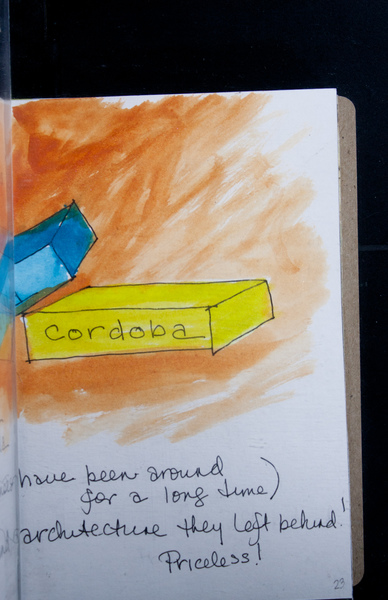 cordoba
have been around
for a long time)
architecture they left behind!
Priceless!
23